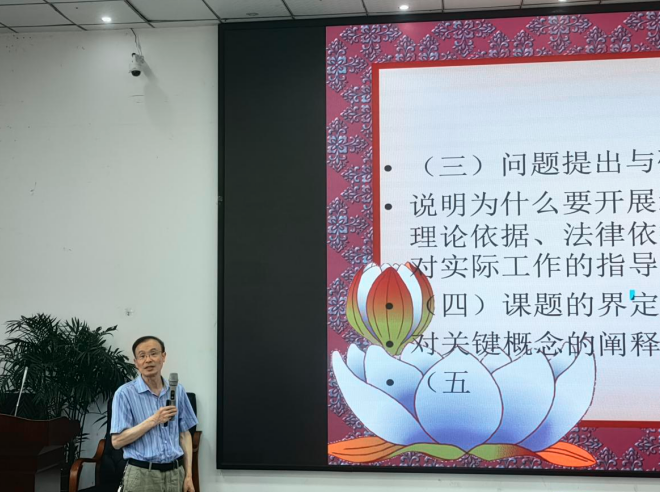 （三）问题提出与
说明为什么要开展
理论依据、法律依
对实际工作的指导
（四）课题的界定
对关键概念的阐释
（五